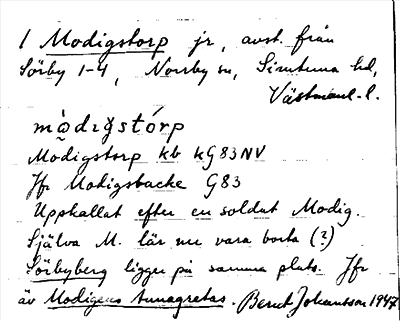 1 Modigstorp jr, avst. från
Sörby 1-4, Norrby sn, Simtuna hd,
Västmanl. l.
mὼ̰dɪgstórp
Modigstorp kb kG83NV
Jfr Modigsbacke G83
Uppkallat efter en soldat Modig.
Själva M. lär nu vara borta (?)
Sörbyberg ligger på samma plats. Jfr
äv Modigens tunagretas. Bernt Johansson 1947